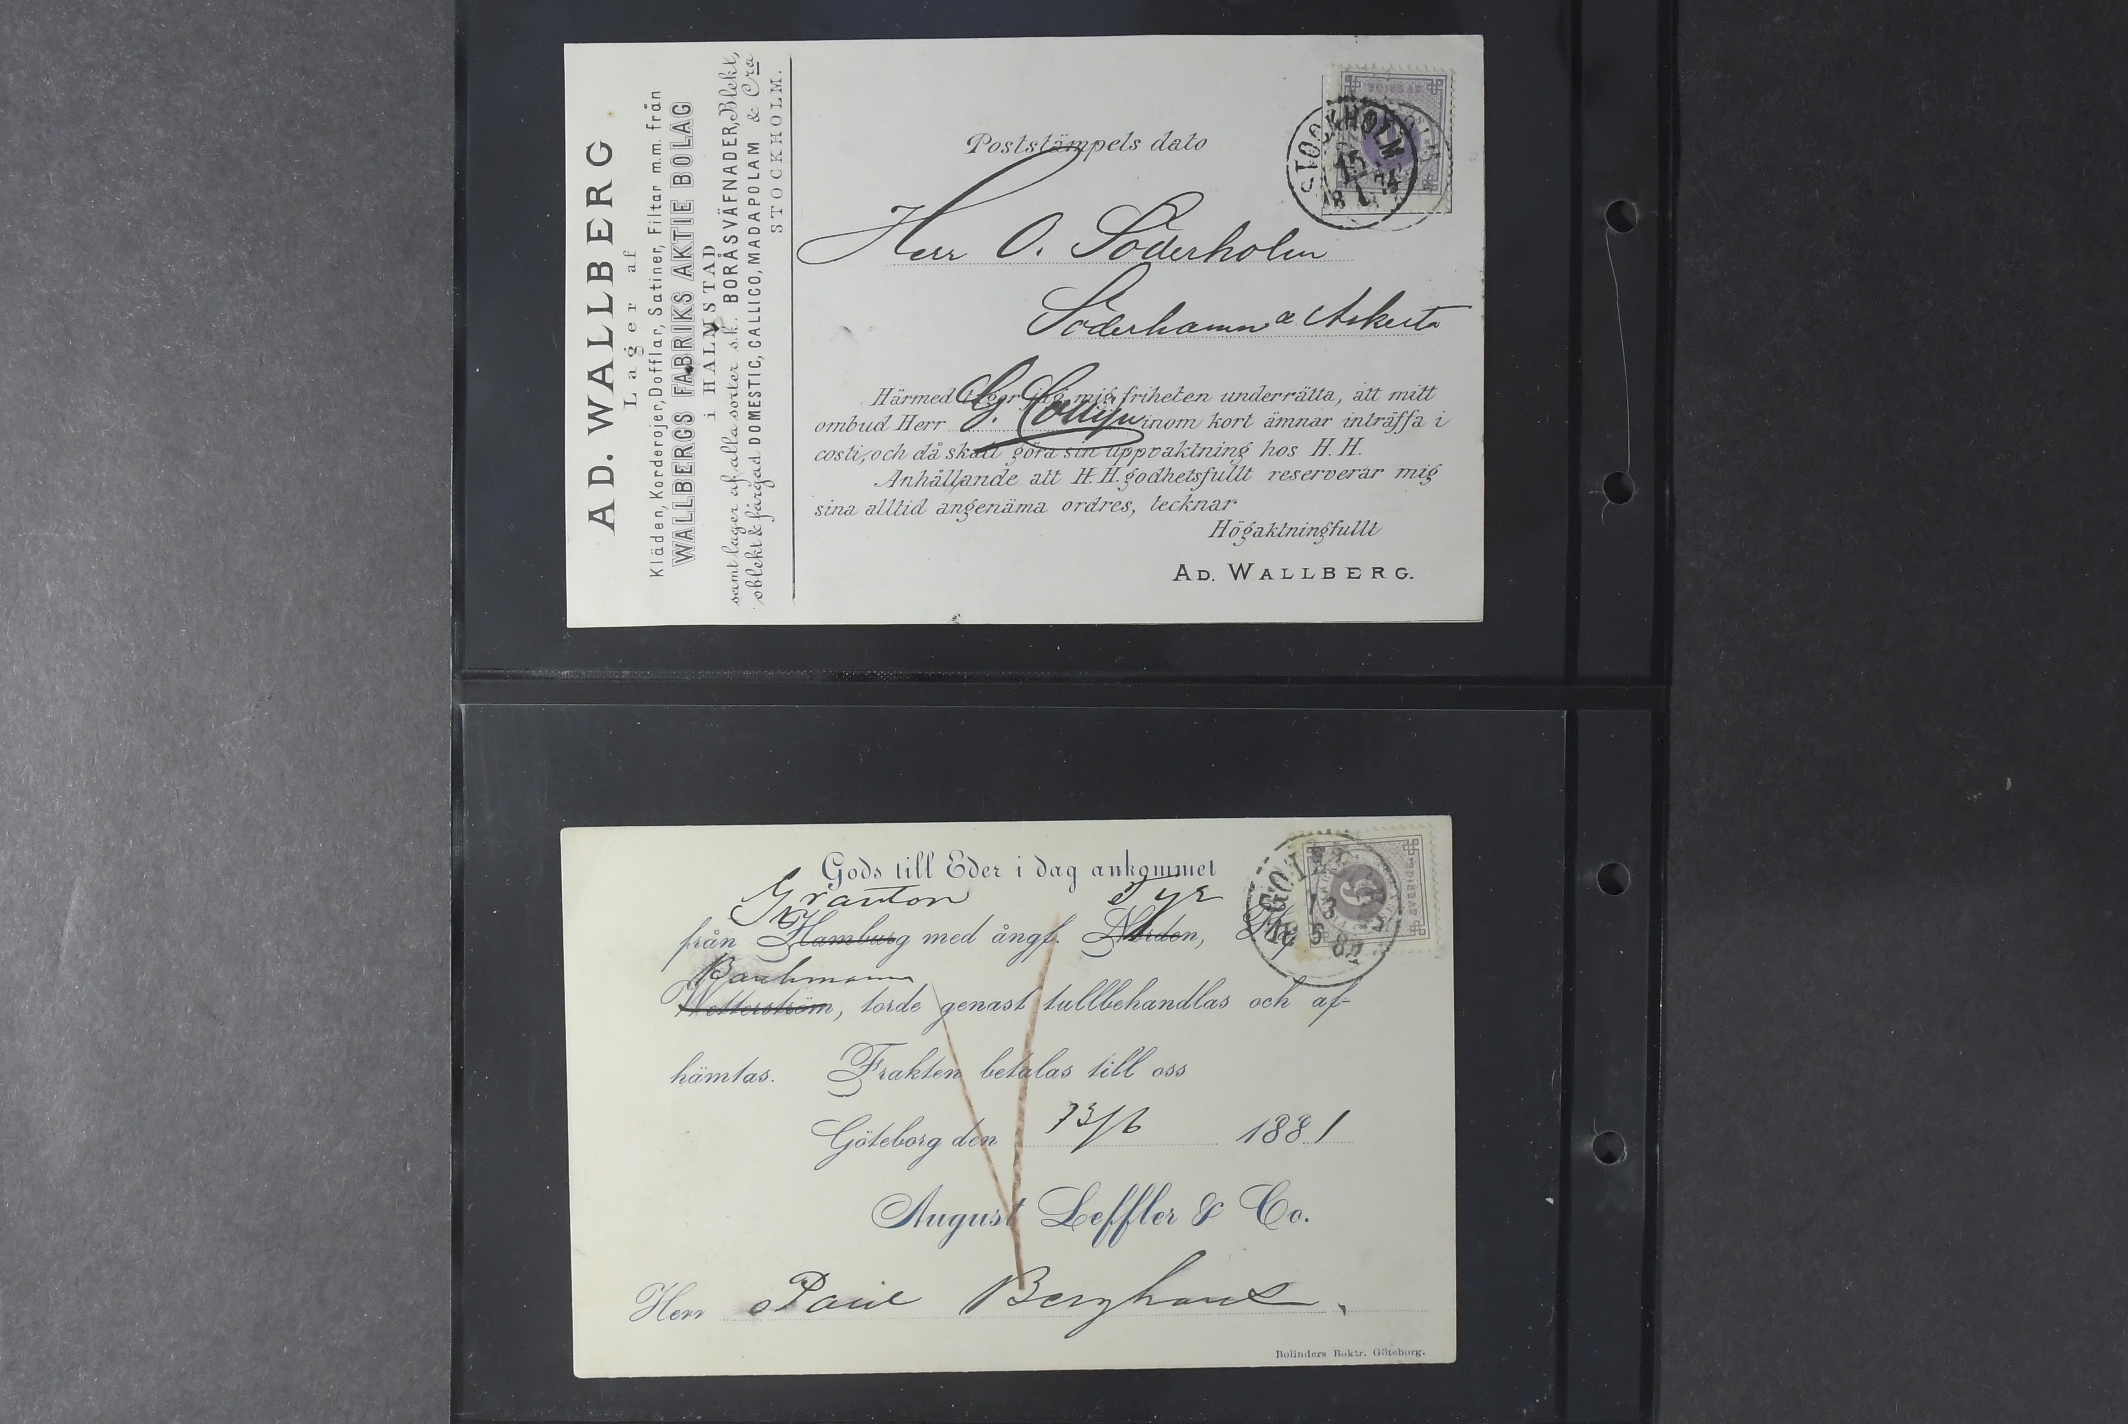 AD. WALLBERG
Lager af
Kläden, Korderojer, Dofflar, Satiner, Filtar m.m. från
WALLBERGS FABRIKS AKTIE BOLAG
i HALMSTAD
samt lager af alla sorter s.k. BORÅSVÄFNADER, Blekt,
oblekt & färgad DOMESTIC, CALLICO, MADAPOLAM & Cra
STOCKHOLM.
Poststämpels dato
STOCKHOLM
15
1
Herr O. Söderholm
Söderhamn
Härmed tager jag mig friheten underrätta, att mitt
ombud Herr inom kort ämnar inträffa i
costi, och då skall göra sin uppvaktning hos H. H.
Anhållande att H. H. godhetsfullt reserverar mig
sina alltid angenäma ordres, tecknar
Högaktningfullt
AD. WALLBERG.
Gods till Eder i dag ankommet
Granton
från Hamburg med ångf. Norden,
Wetterström, torde genast tullbehandlas och af-
hämtas. Frakten betalas till oss
Göteborg den 1881
August Leffler & Co.
Herr Paul Berghaus
Bolinders Boktr. Göteborg.
SVERIGE